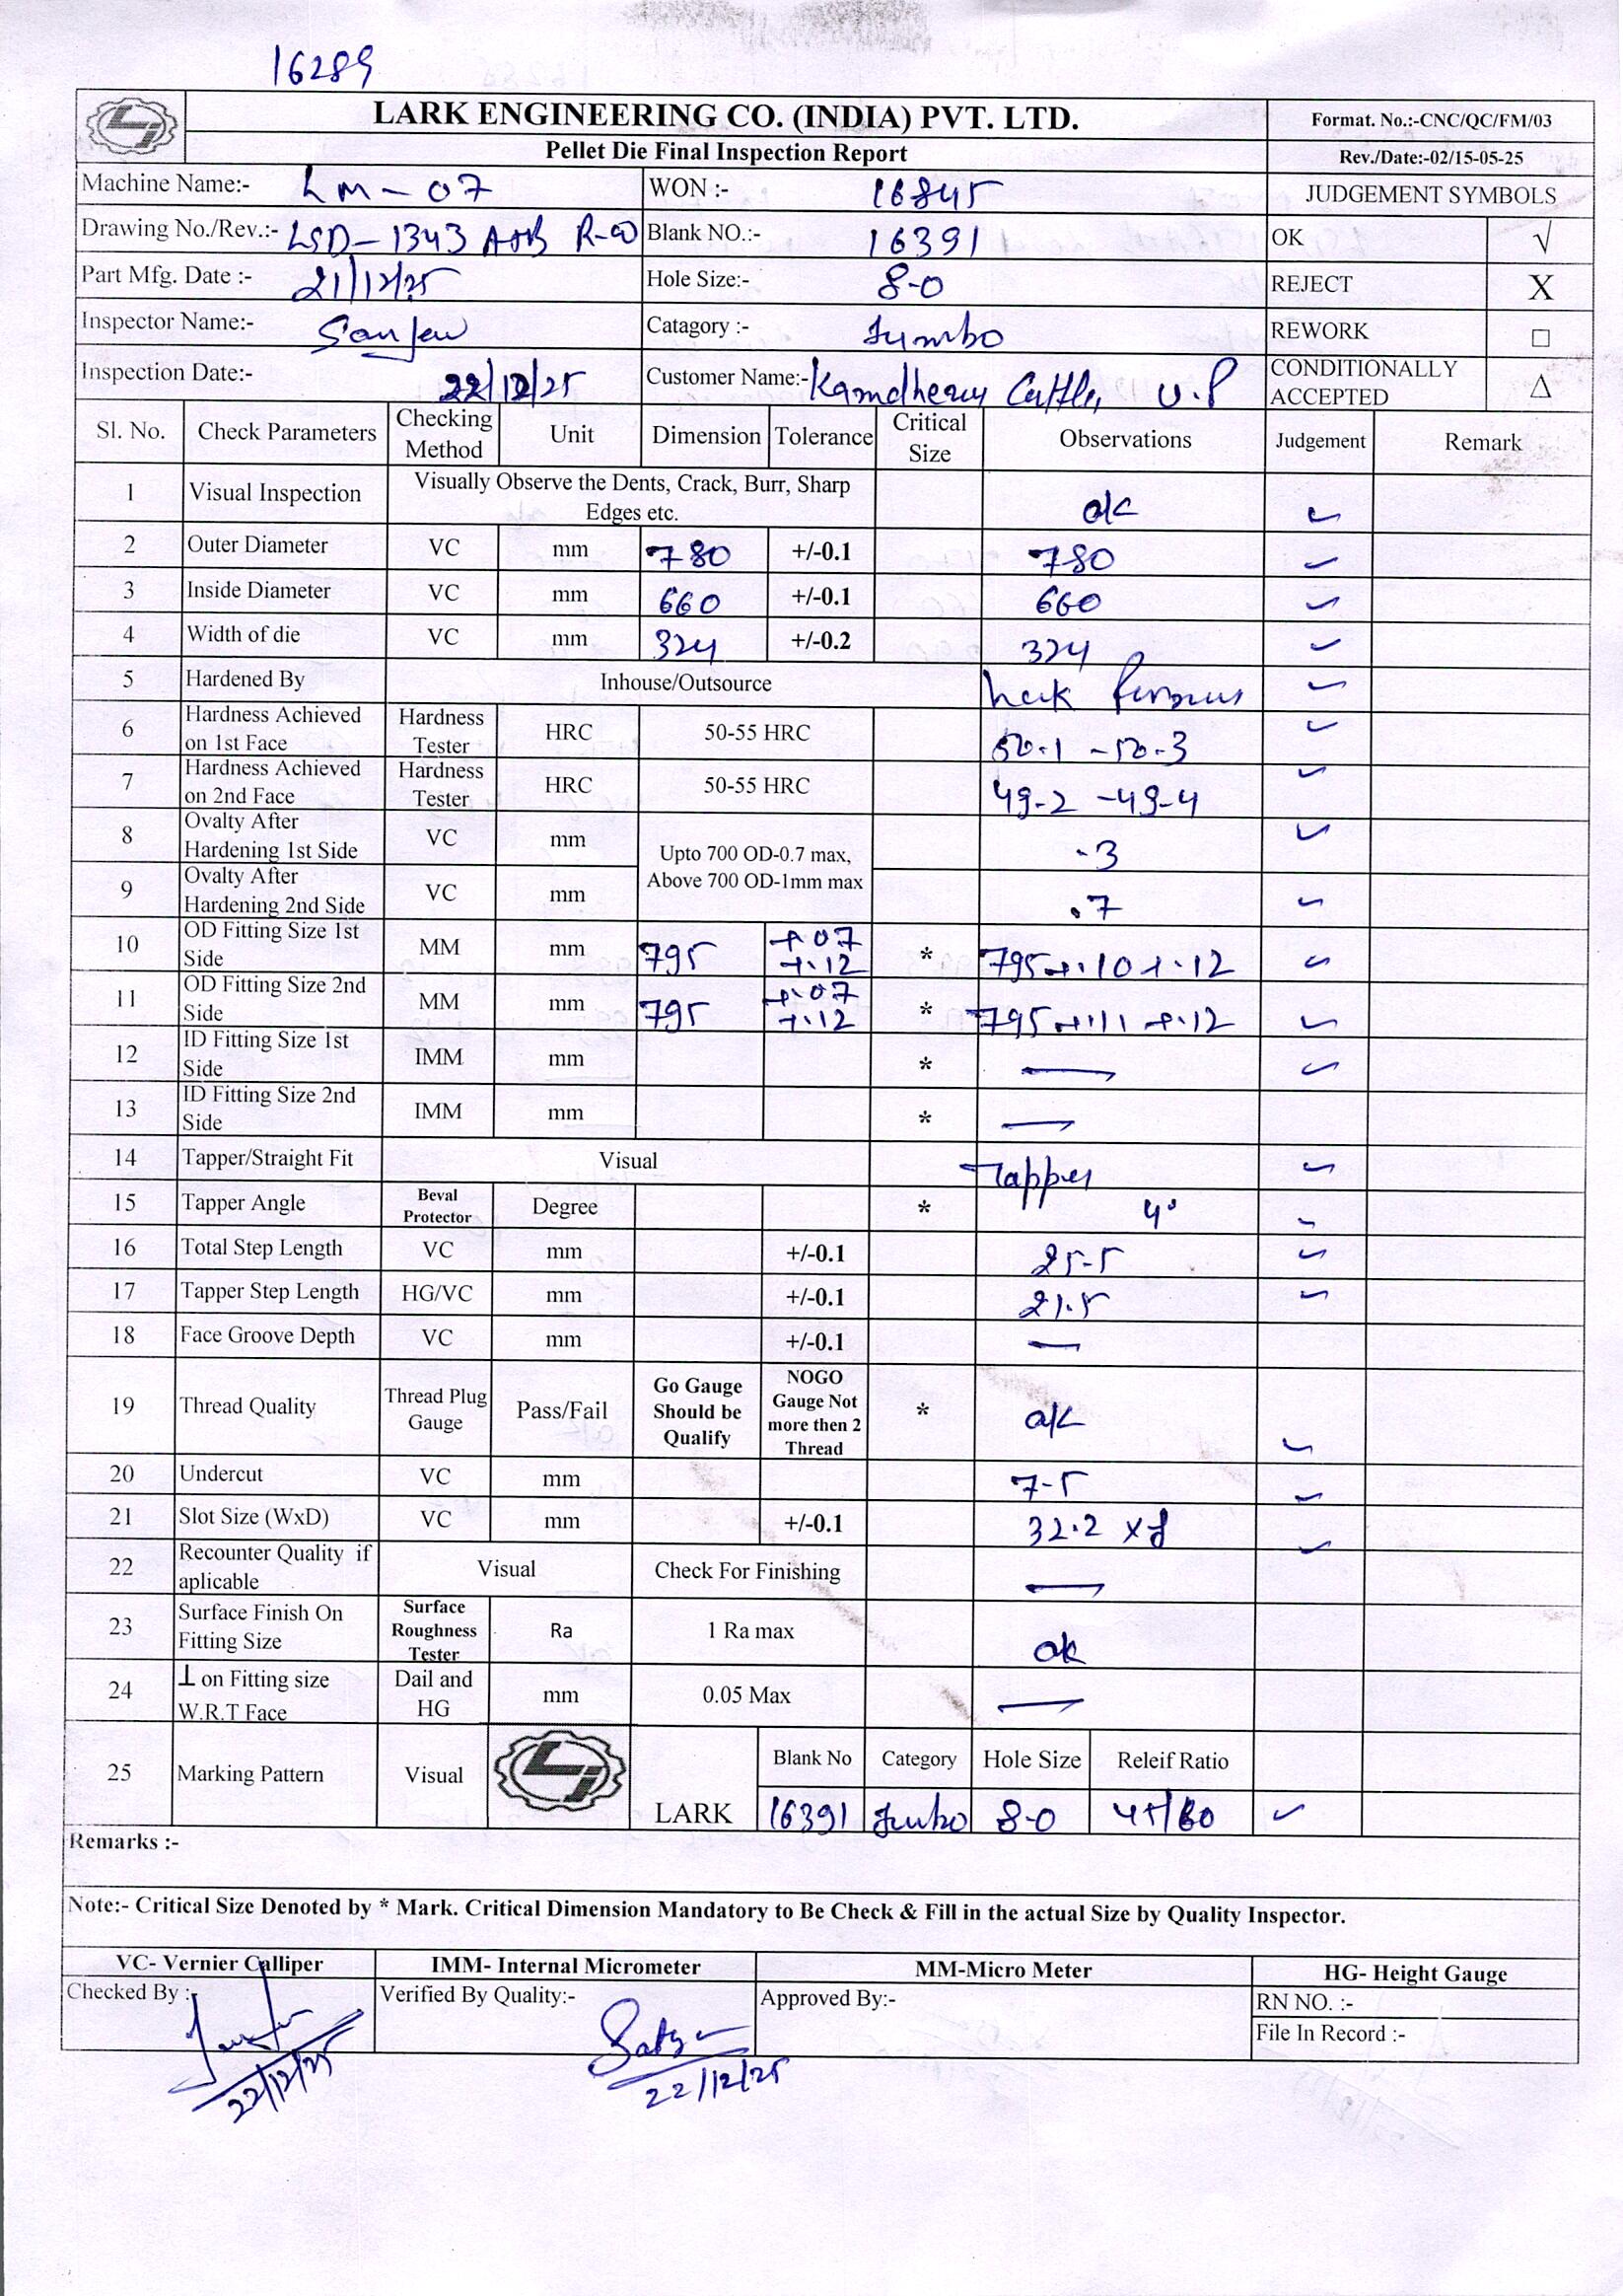 16289
LARK ENGINEERING CO. (INDIA) PVT. LTD.
Format. No.:-CNC/QC/FM/03
Pellet Die Final Inspection Report
Rev./Date:-02/15-05-25
Machine Name:- LM-07 WON :- 16845 JUDGEMENT SYMBOLS
Drawing No./Rev.:- LSD-1343 A+B R-00 Blank NO.:- 16391 OK √
Part Mfg. Date :- 21/12/25 Hole Size:- 8-0 REJECT X
Inspector Name:- Sanjeev Catagory :- Jumbo REWORK □
Inspection Date:- 22/12/25 Customer Name:- Kamdhenu Cattle, U.P CONDITIONALLY ACCEPTED Δ
Sl. No. Check Parameters Checking Method Unit Dimension Tolerance Critical Size Observations Judgement Remark
1 Visual Inspection Visually Observe the Dents, Crack, Burr, Sharp Edges etc. o/k ✓
2 Outer Diameter VC mm 780 +/-0.1 780 ✓
3 Inside Diameter VC mm 660 +/-0.1 660 ✓
4 Width of die VC mm 324 +/-0.2 324 ✓
5 Hardened By Inhouse/Outsource ✓
6 Hardness Achieved on 1st Face Hardness Tester HRC 50-55 HRC 50.1 -50.3 ✓
7 Hardness Achieved on 2nd Face Hardness Tester HRC 50-55 HRC 49-2 -49-4 ✓
8 Ovalty After Hardening 1st Side VC mm Upto 700 OD-0.7 max, Above 700 OD-1mm max .3 ✓
9 Ovalty After Hardening 2nd Side VC mm .7 ✓
10 OD Fitting Size 1st Side MM mm 795 +.07 +.12 * 795+.10 +.12 ✓
11 OD Fitting Size 2nd Side MM mm 795 +.07 +.12 * 795+.11 +.12 ✓
12 ID Fitting Size 1st Side IMM mm * — ✓
13 ID Fitting Size 2nd Side IMM mm * —
14 Tapper/Straight Fit Visual Tapper ✓
15 Tapper Angle Beval Protector Degree * 4° ✓
16 Total Step Length VC mm +/-0.1 25-5 ✓
17 Tapper Step Length HG/VC mm +/-0.1 21.5 ✓
18 Face Groove Depth VC mm +/-0.1 —
19 Thread Quality Thread Plug Gauge Pass/Fail Go Gauge Should be Qualify NOGO Gauge Not more then 2 Thread * o/k ✓
20 Undercut VC mm 7-5 ✓
21 Slot Size (WxD) VC mm +/-0.1 32.2 x 8 ✓
22 Recounter Quality if aplicable Visual Check For Finishing —
23 Surface Finish On Fitting Size Surface Roughness Tester Ra 1 Ra max ok
24 ⊥ on Fitting size W.R.T Face Dail and HG mm 0.05 Max —
25 Marking Pattern Visual LARK Blank No Category Hole Size Releif Ratio
16391 Jumbo 8-0 45/60 ✓
Remarks :-
Note:- Critical Size Denoted by * Mark. Critical Dimension Mandatory to Be Check & Fill in the actual Size by Quality Inspector.
VC- Vernier Calliper IMM- Internal Micrometer MM-Micro Meter HG- Height Gauge
Checked By :- Verified By Quality:- Approved By:- RN NO. :-
File In Record :-
22/12/25 22/12/25